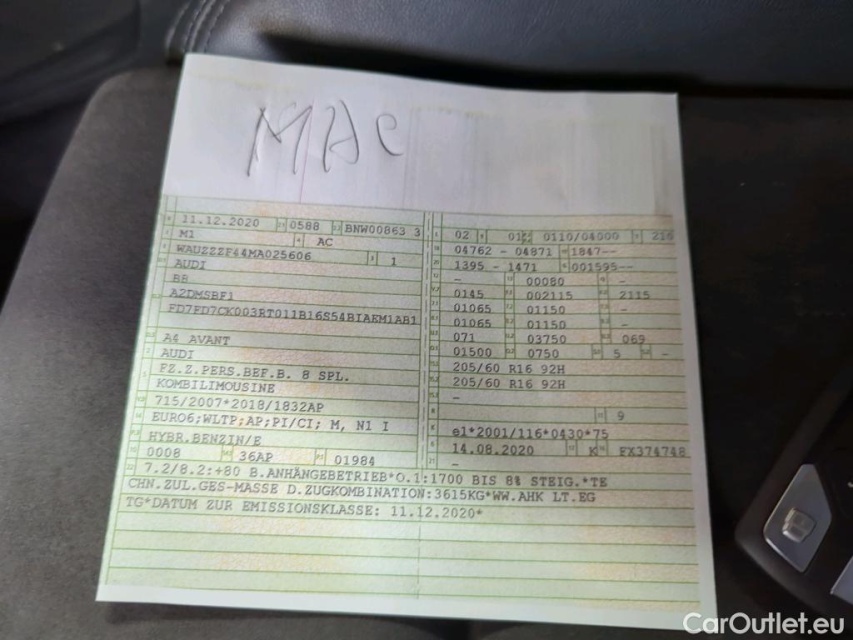 MAC
11.12.2020 0588 BNW00863 3
M1 AC
WAUZZZF44MA025606 1
AUDI
B8
A2DMSBF1
FD7FD7CK003RT011B16S54BIAEM1AB1
A4 AVANT
AUDI
FZ.Z.PERS.BEF.B. 8 SPL.
KOMBILIMOUSINE
715/2007*2018/1832AP
EURO6;WLTP;AP;PI/CI; M, N1 I
HYBR.BENZIN/E
0008 36AP 01984
02 0110/04000 216
04762 - 04871 1847--
1395 - 1471 001595--
- 00080 -
0145 002115 2115
01065 01150 -
01065 01150 -
071 03750 069
01500 0750 5 -
205/60 R16 92H
205/60 R16 92H
-
9
e1*2001/116*0430*75
14.08.2020 K FX374748
-
7.2/8.2:+80 B.ANHÄNGEBETRIEB*O.1:1700 BIS 8% STEIG.*TE
CHN.ZUL.GES-MASSE D.ZUGKOMBINATION:3615KG*WW.AHK LT.EG
TG*DATUM ZUR EMISSIONSKLASSE: 11.12.2020*
CarOutlet.eu